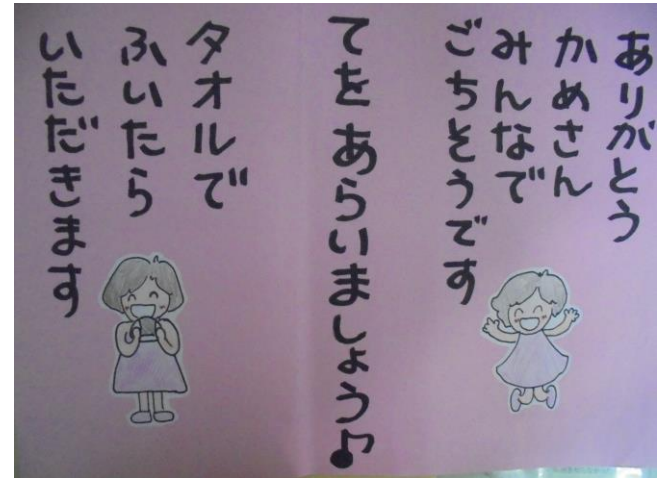 ありがとう
かめさん
みんなで
ごちそうです
てを あらいましょう♪
タオルで
ふいたら
いただきます